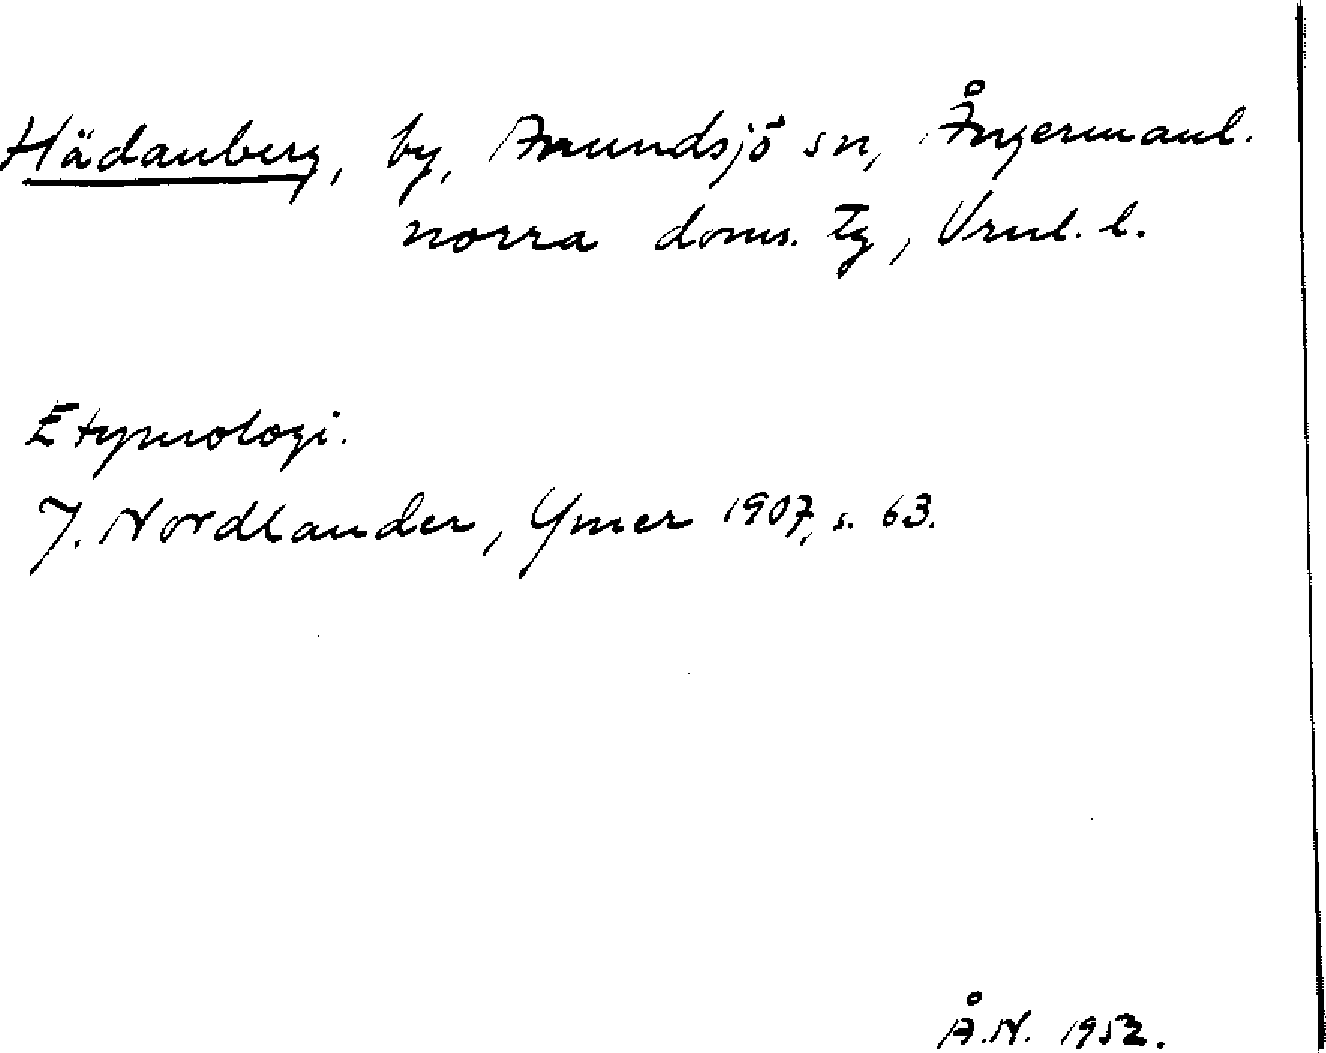 Hädanberg, by, Anundsjö sn, Ångermanl.
norra doms. tg, Vrnl. l.
Etymologi.
J. Nordlander, Ymer 1907, s. 63.
Å.N. 1952.